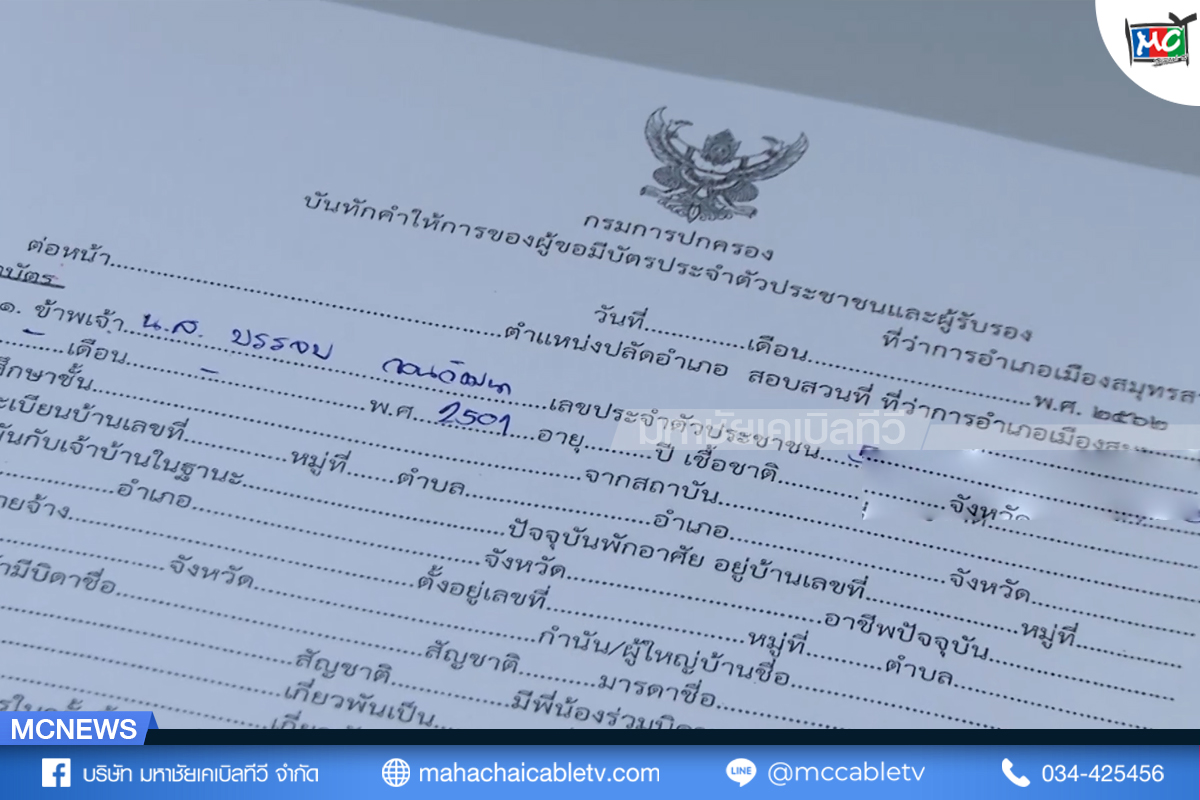 MC
กรมการปกครอง
บันทึกคำให้การของผู้ขอมีบัตรประจำตัวประชาชนและผู้รับรอง
ที่ว่าการอำเภอเมืองสมุทรสา
วันที่............เดือน..............................พ.ศ. ๒๕๖๒
ต่อหน้า..............................ตำแหน่งปลัดอำเภอ สอบสวนที่ ที่ว่าการอำเภอเมืองสม
บัตร
๑. ข้าพเจ้า น.ส. บรรจบ ..............................เลขประจำตัวประชาชน
เดือน..............................พ.ศ. 2501 อายุ..........ปี เชื้อชาติ..............................
ศึกษาชั้น..............................จากสถาบัน..............................จังหวัด
ะเบียนบ้านเลขที่...............หมู่ที่..........ตำบล....................อำเภอ....................จังหวัด....................
พันกับเจ้าบ้านในฐานะ..............................ปัจจุบันพักอาศัย อยู่บ้านเลขที่....................หมู่ที่....................
อำเภอ..............................จังหวัด..............................อาชีพปัจจุบัน....................
ายจ้าง..............................ตั้งอยู่เลขที่....................หมู่ที่..........ตำบล....................
จังหวัด..............................กำนัน/ผู้ใหญ่บ้านชื่อ..............................
ามีบิดาชื่อ..............................สัญชาติ....................มารดาชื่อ..............................
สัญชาติ....................มีพี่น้องร่วมบิดา
เกี่ยวพันเป็น..............................
มหาชัยเคเบิลทีวี
MCNEWS
บริษัท มหาชัยเคเบิลทีวี จำกัด
mahachaicabletv.com
LINE
@mccabletv
034-425456